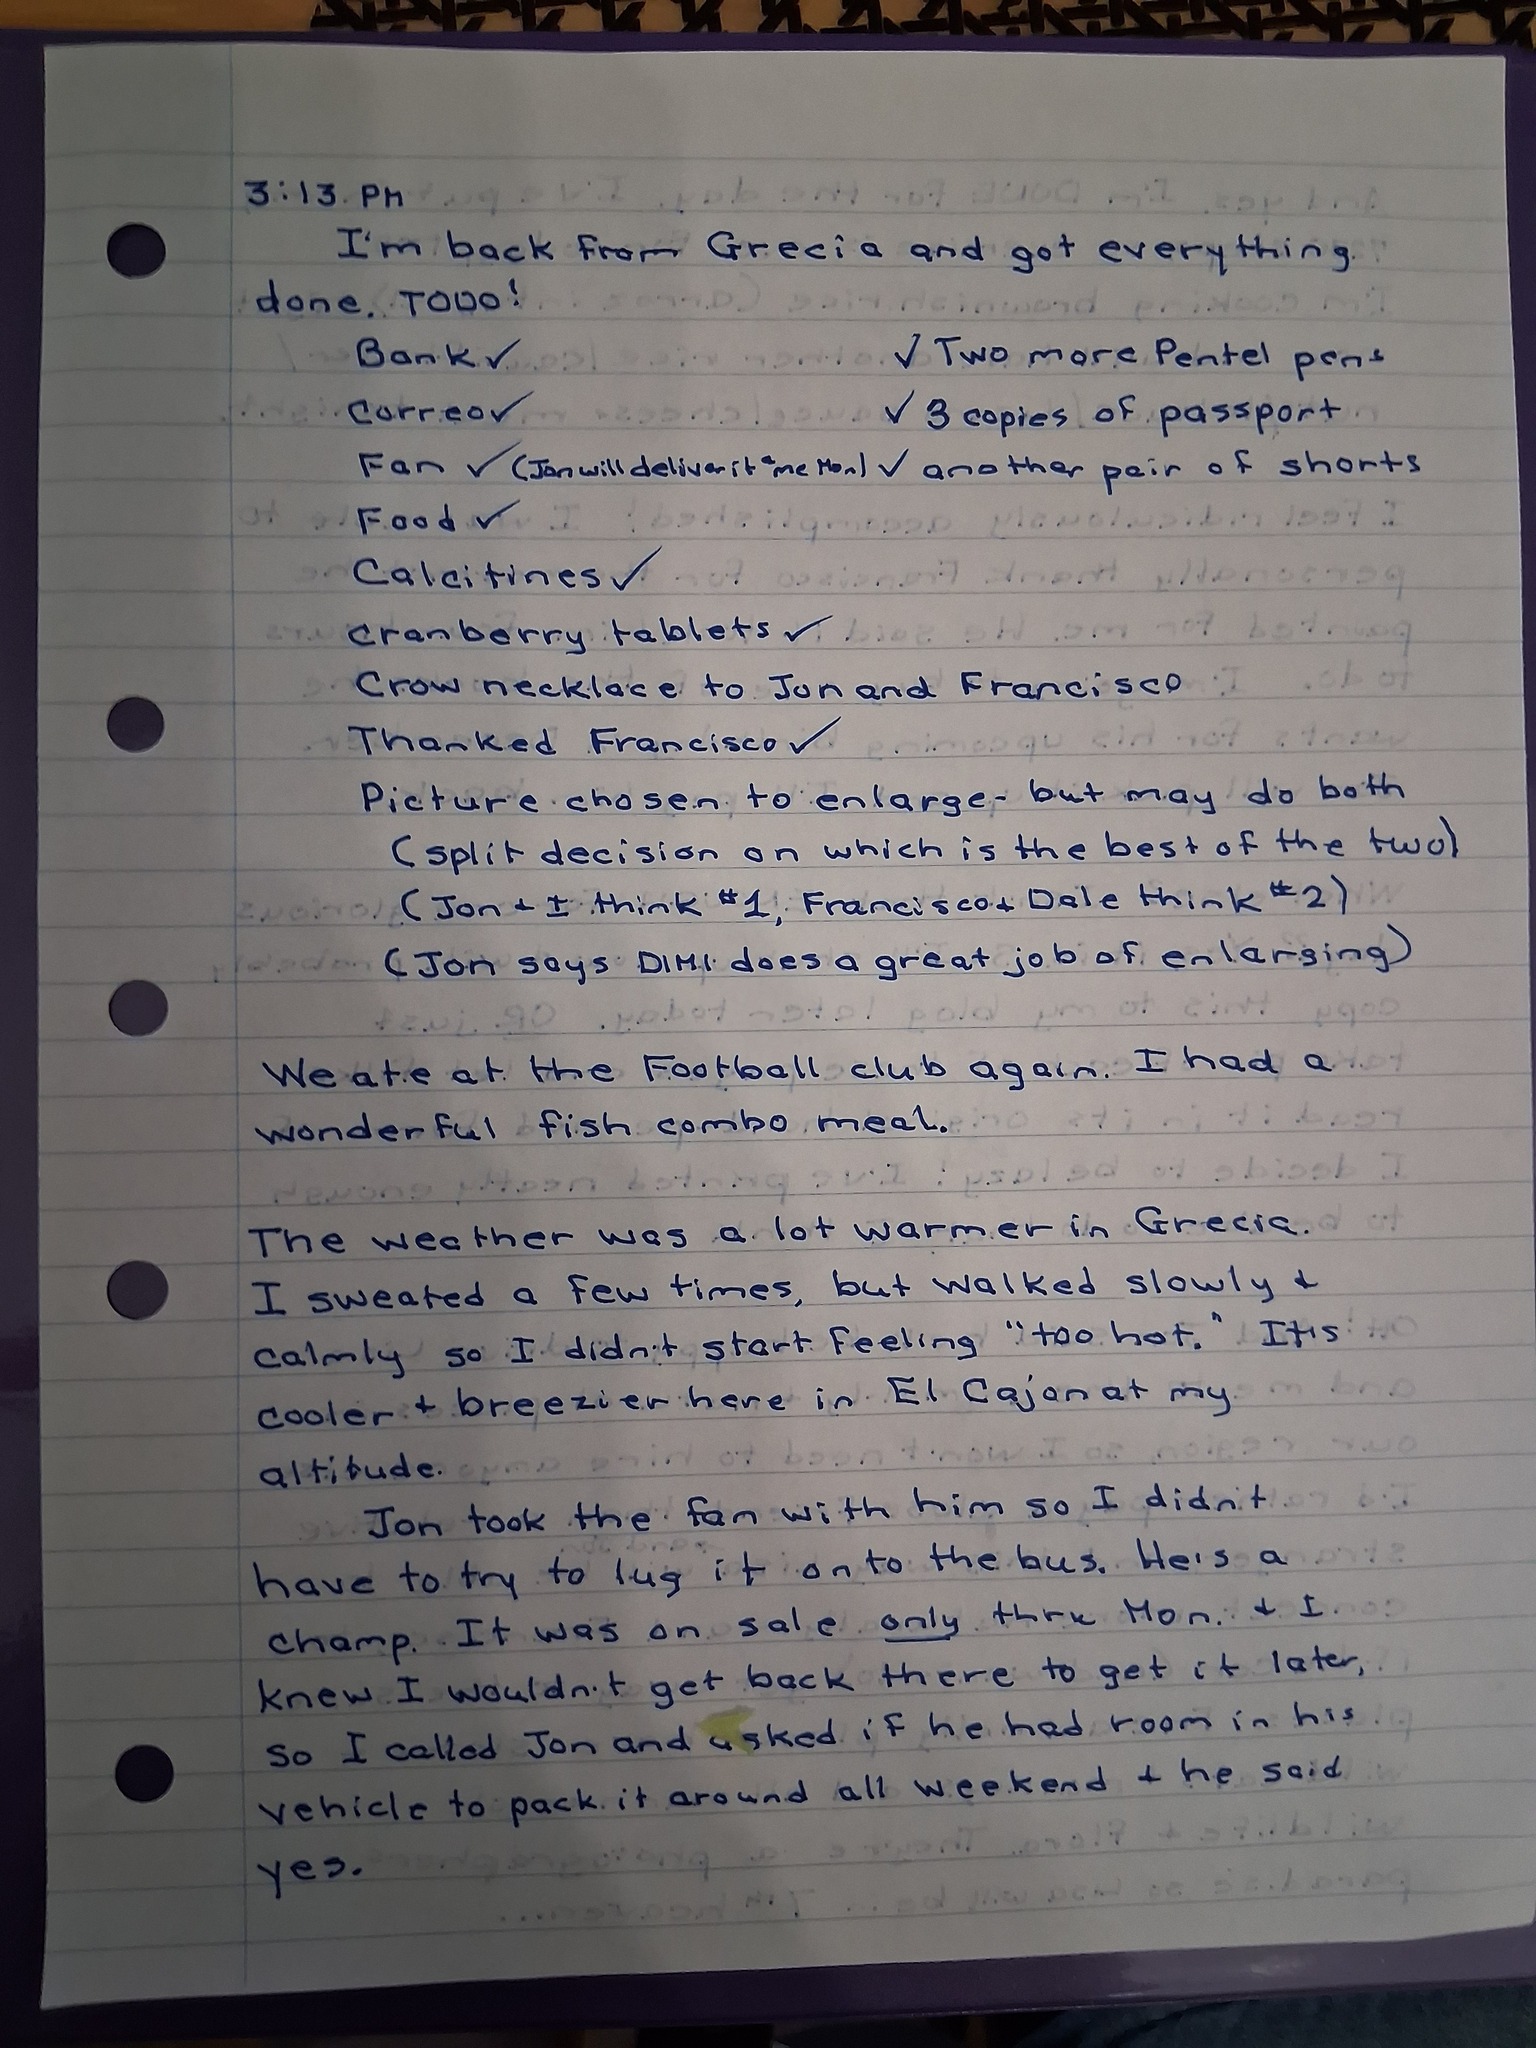 3:13 PM
I'm back from Grecia and got everything
done. TODO!
Bank ✓ ✓ Two more Pentel pens
Correo ✓ ✓ 3 copies of passport
Fan ✓ (Jon will deliver it me Mon) ✓ another pair of shorts
Food ✓
Calcitines ✓
cranberry tablets ✓
Crow necklace to Jon and Francisco
Thanked Francisco ✓
Picture chosen to enlarge - but may do both
(split decision on which is the best of the two)
(Jon + I think #1, Francisco + Dale think #2)
(Jon says DIMI does a great job of enlarging)
We ate at the Football club again. I had a
wonderful fish combo meal.
The weather was a lot warmer in Grecia.
I sweated a few times, but walked slowly +
calmly so I didn't start feeling "too hot." It's
cooler + breezier here in El Cajon at my
altitude.
Jon took the fan with him so I didn't
have to try to lug it onto the bus. He's a
champ. It was on sale only thru Mon. + I
knew I wouldn't get back there to get it later,
so I called Jon and asked if he had room in his
vehicle to pack it around all weekend + he said
yes.